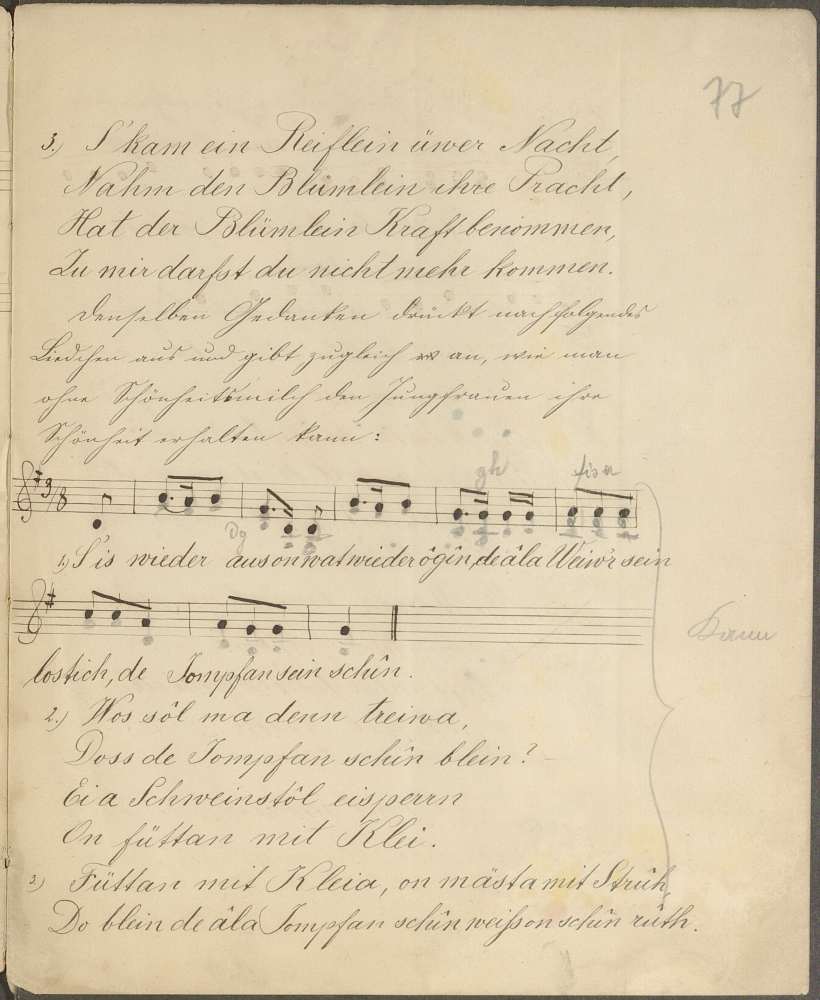 77
3.) S'kam ein Reiflein üwer Nacht,
Nahm den Blümlein ihre Pracht,
Hat der Blümlein Kraft benommen,
Zu mir darfst du nicht mehr kommen.
Denselben Gedanken drückt nachfolgendes
Liedchen aus und gibt zugleich an, wie man
ohne Schönheitsmilch den Jungfrauen ihre
Schönheit erhalten kann:
3/8
1.) S'is wieder aus on wat wieder ôgîn, de âla Weiw'r sein
lostich, de Jompfan sein schîn.
2.) Wos sôl ma denn treiwa,
Doss de Jompfan schîn blein?
Ei a Schweinstôl eisperrn
On füttan mit Klei.
3.) Füttan mit Kleia, on mästa mit Strûh,
Do blein de âla Jompfan schîn weiß on schîn rûth.